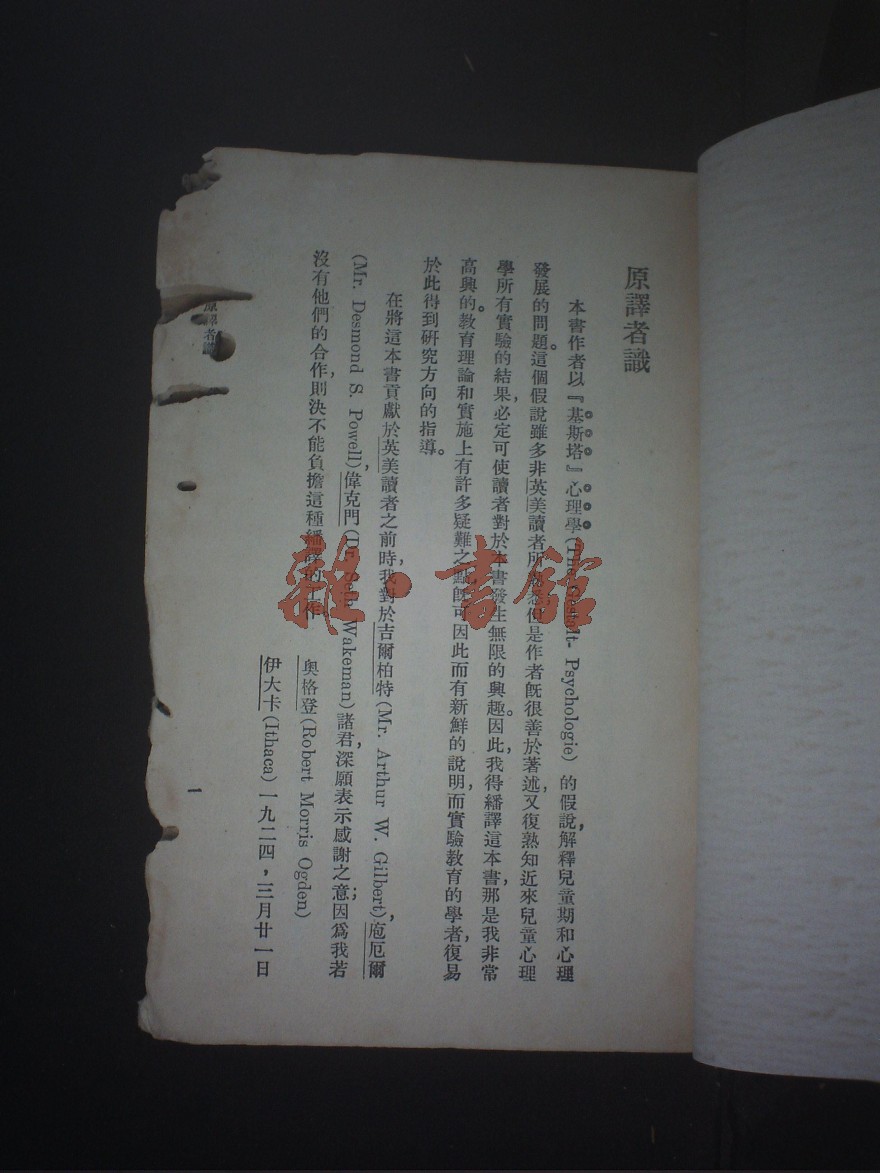 原譯者識
本書作者以『基斯塔』心理學(The Gestalt-Psychologie)的假說，解釋兒童期和心理
發展的問題。這個假說雖多非英美讀者所熟悉但是作者旣很善於著述，又復熟知近來兒童心理
學所有實驗的結果，必定可使讀者對於本書發生無限的興趣。因此，我得繙譯這本書，那是我非常
高興的。敎育理論和實施上有許多疑難之點旣可因此而有新鮮的說明，而實驗敎育的學者，復易
於此得到硏究方向的指導。
在將這本書貢獻於英美讀者之前時，我對於吉爾柏特(Mr. Arthur W. Gilbert)，庖厄爾
(Mr. Desmond S. Powell)，偉克門(Dr. Seth Wakeman)諸君，深願表示感謝之意；因爲我若
沒有他們的合作，則決不能負擔這種繙譯的工作。
奧格登(Robert Morris Ogden)
伊大卡(Ithaca)一九二四，三月廿一日
原譯者識
一
雜·書館